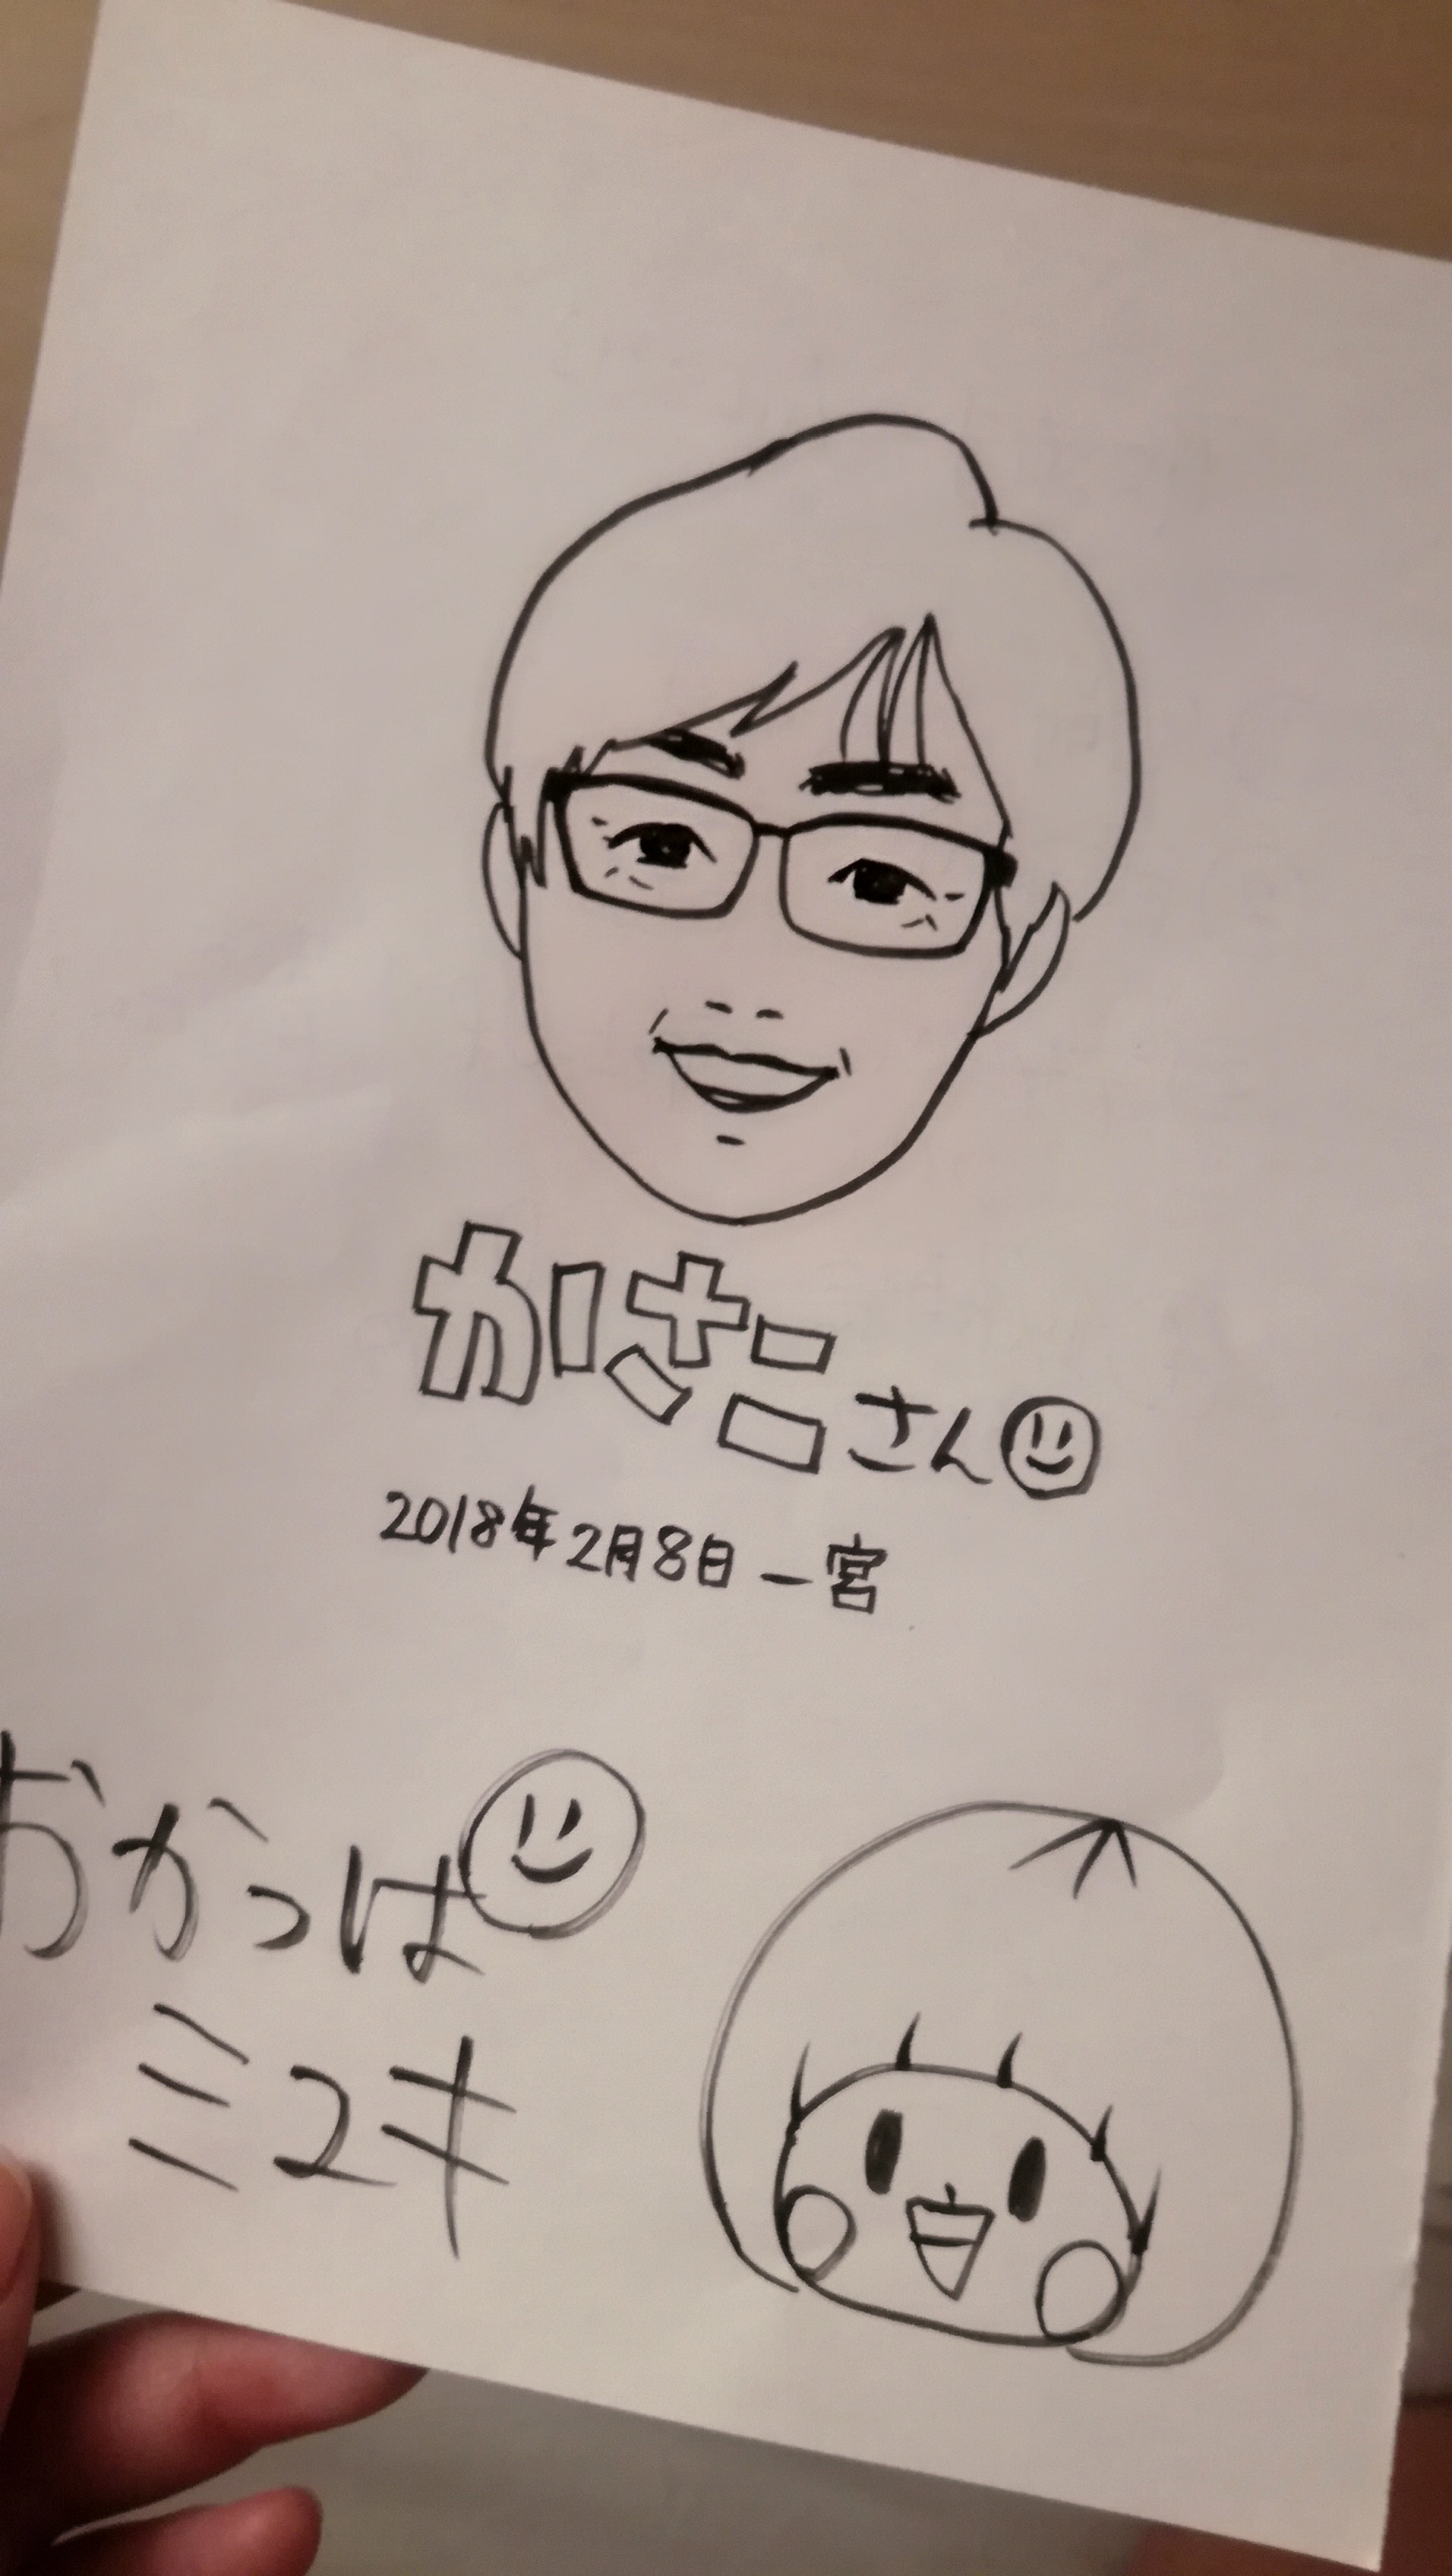 かさこさん
2018年2月8日 一宮
おかっぱ
ミユキ